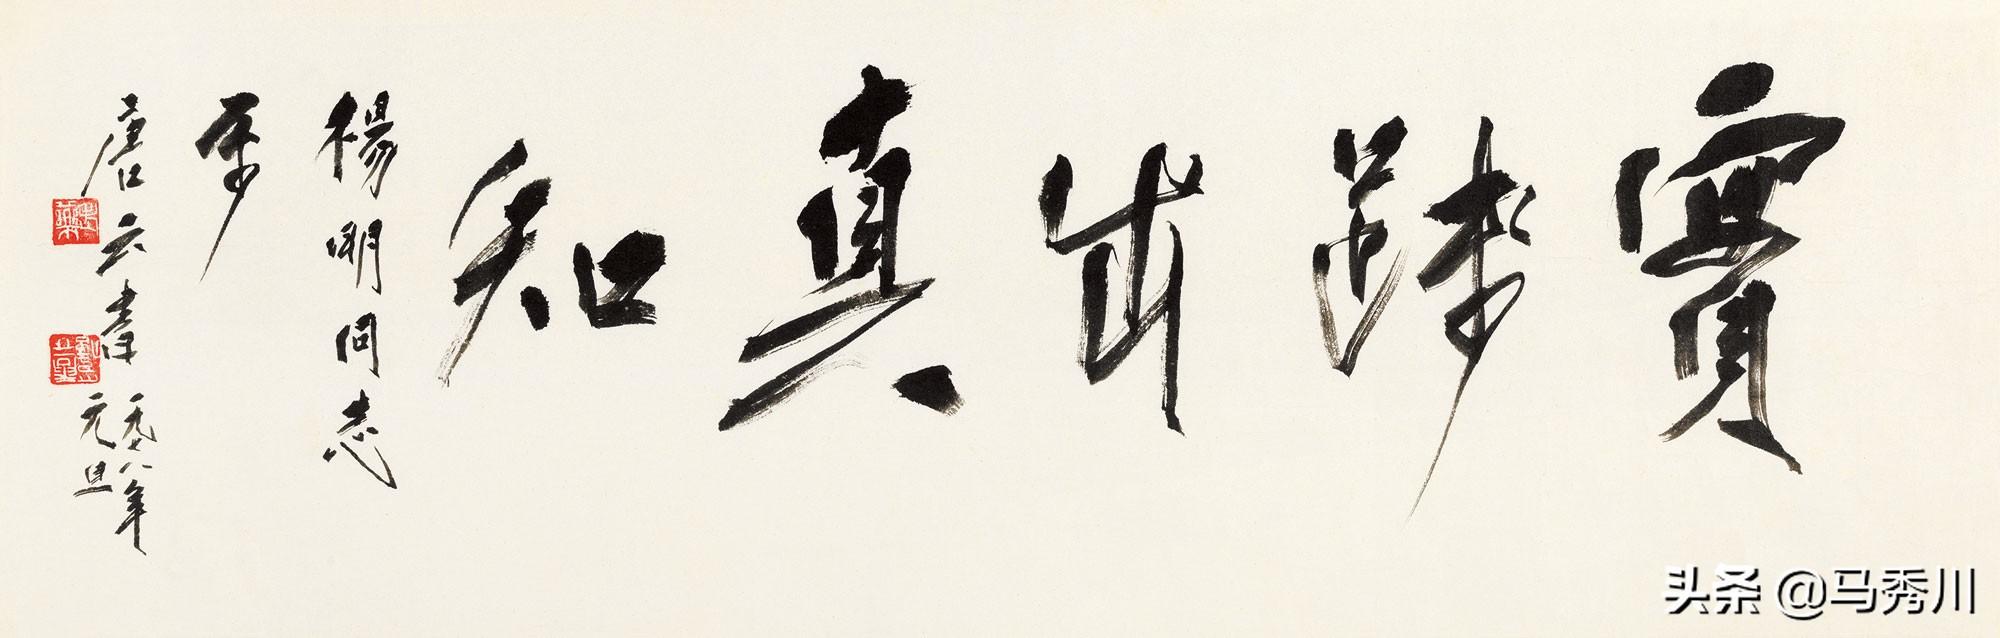 實踐出真知
楊明同志
唐云書 一九七八年
元旦
头条 @马秀川